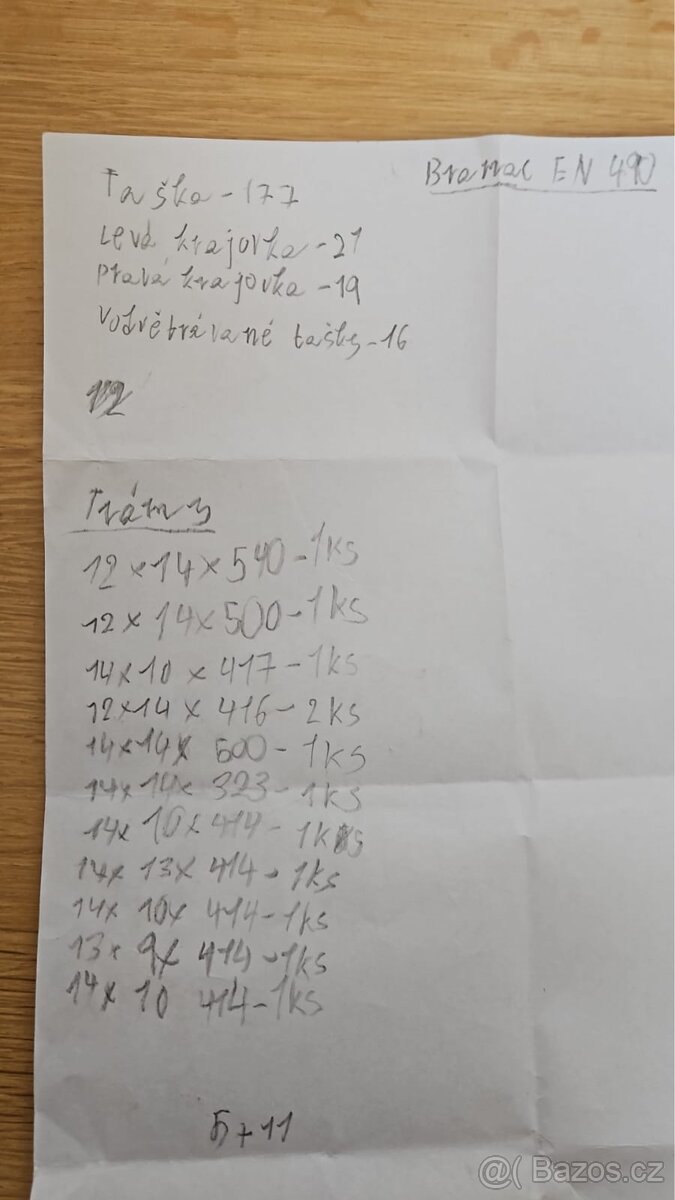 Bramac EN 490
Taška - 177
Levá krajovka - 21
Pravá krajovka - 19
Vodvětrávané tašky - 16
Trámy
12 x 14 x 540 - 1ks
12 x 14 x 500 - 1ks
14x10 x 417 - 1ks
12x14 x 416 - 2ks
14x14x 500 - 1ks
14x 14x 323 - 1ks
14x 10x 414 - 1ks
14x 13x 414 - 1ks
14x 10x 414 - 1ks
13x 9x 414 - 1ks
14x 10 414 - 1ks
5+11
@( Bazos.cz